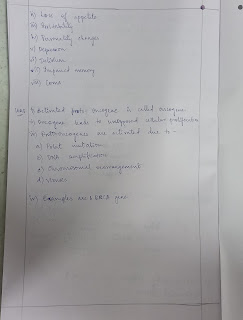 a) Loss of appetite
Irritability
Personality changes
Depression
Delirium
Impaired memory
viii) Coma
i) Activated proto-oncogene is called oncogene
ii) Oncogene leads to unlimited cellular proliferation
iii) Protooncogenes are activated due to -
a) Point mutation
DNA amplification
c) Chromosomal rearrangement
d) Viruses
iv) Examples are BRCA gene